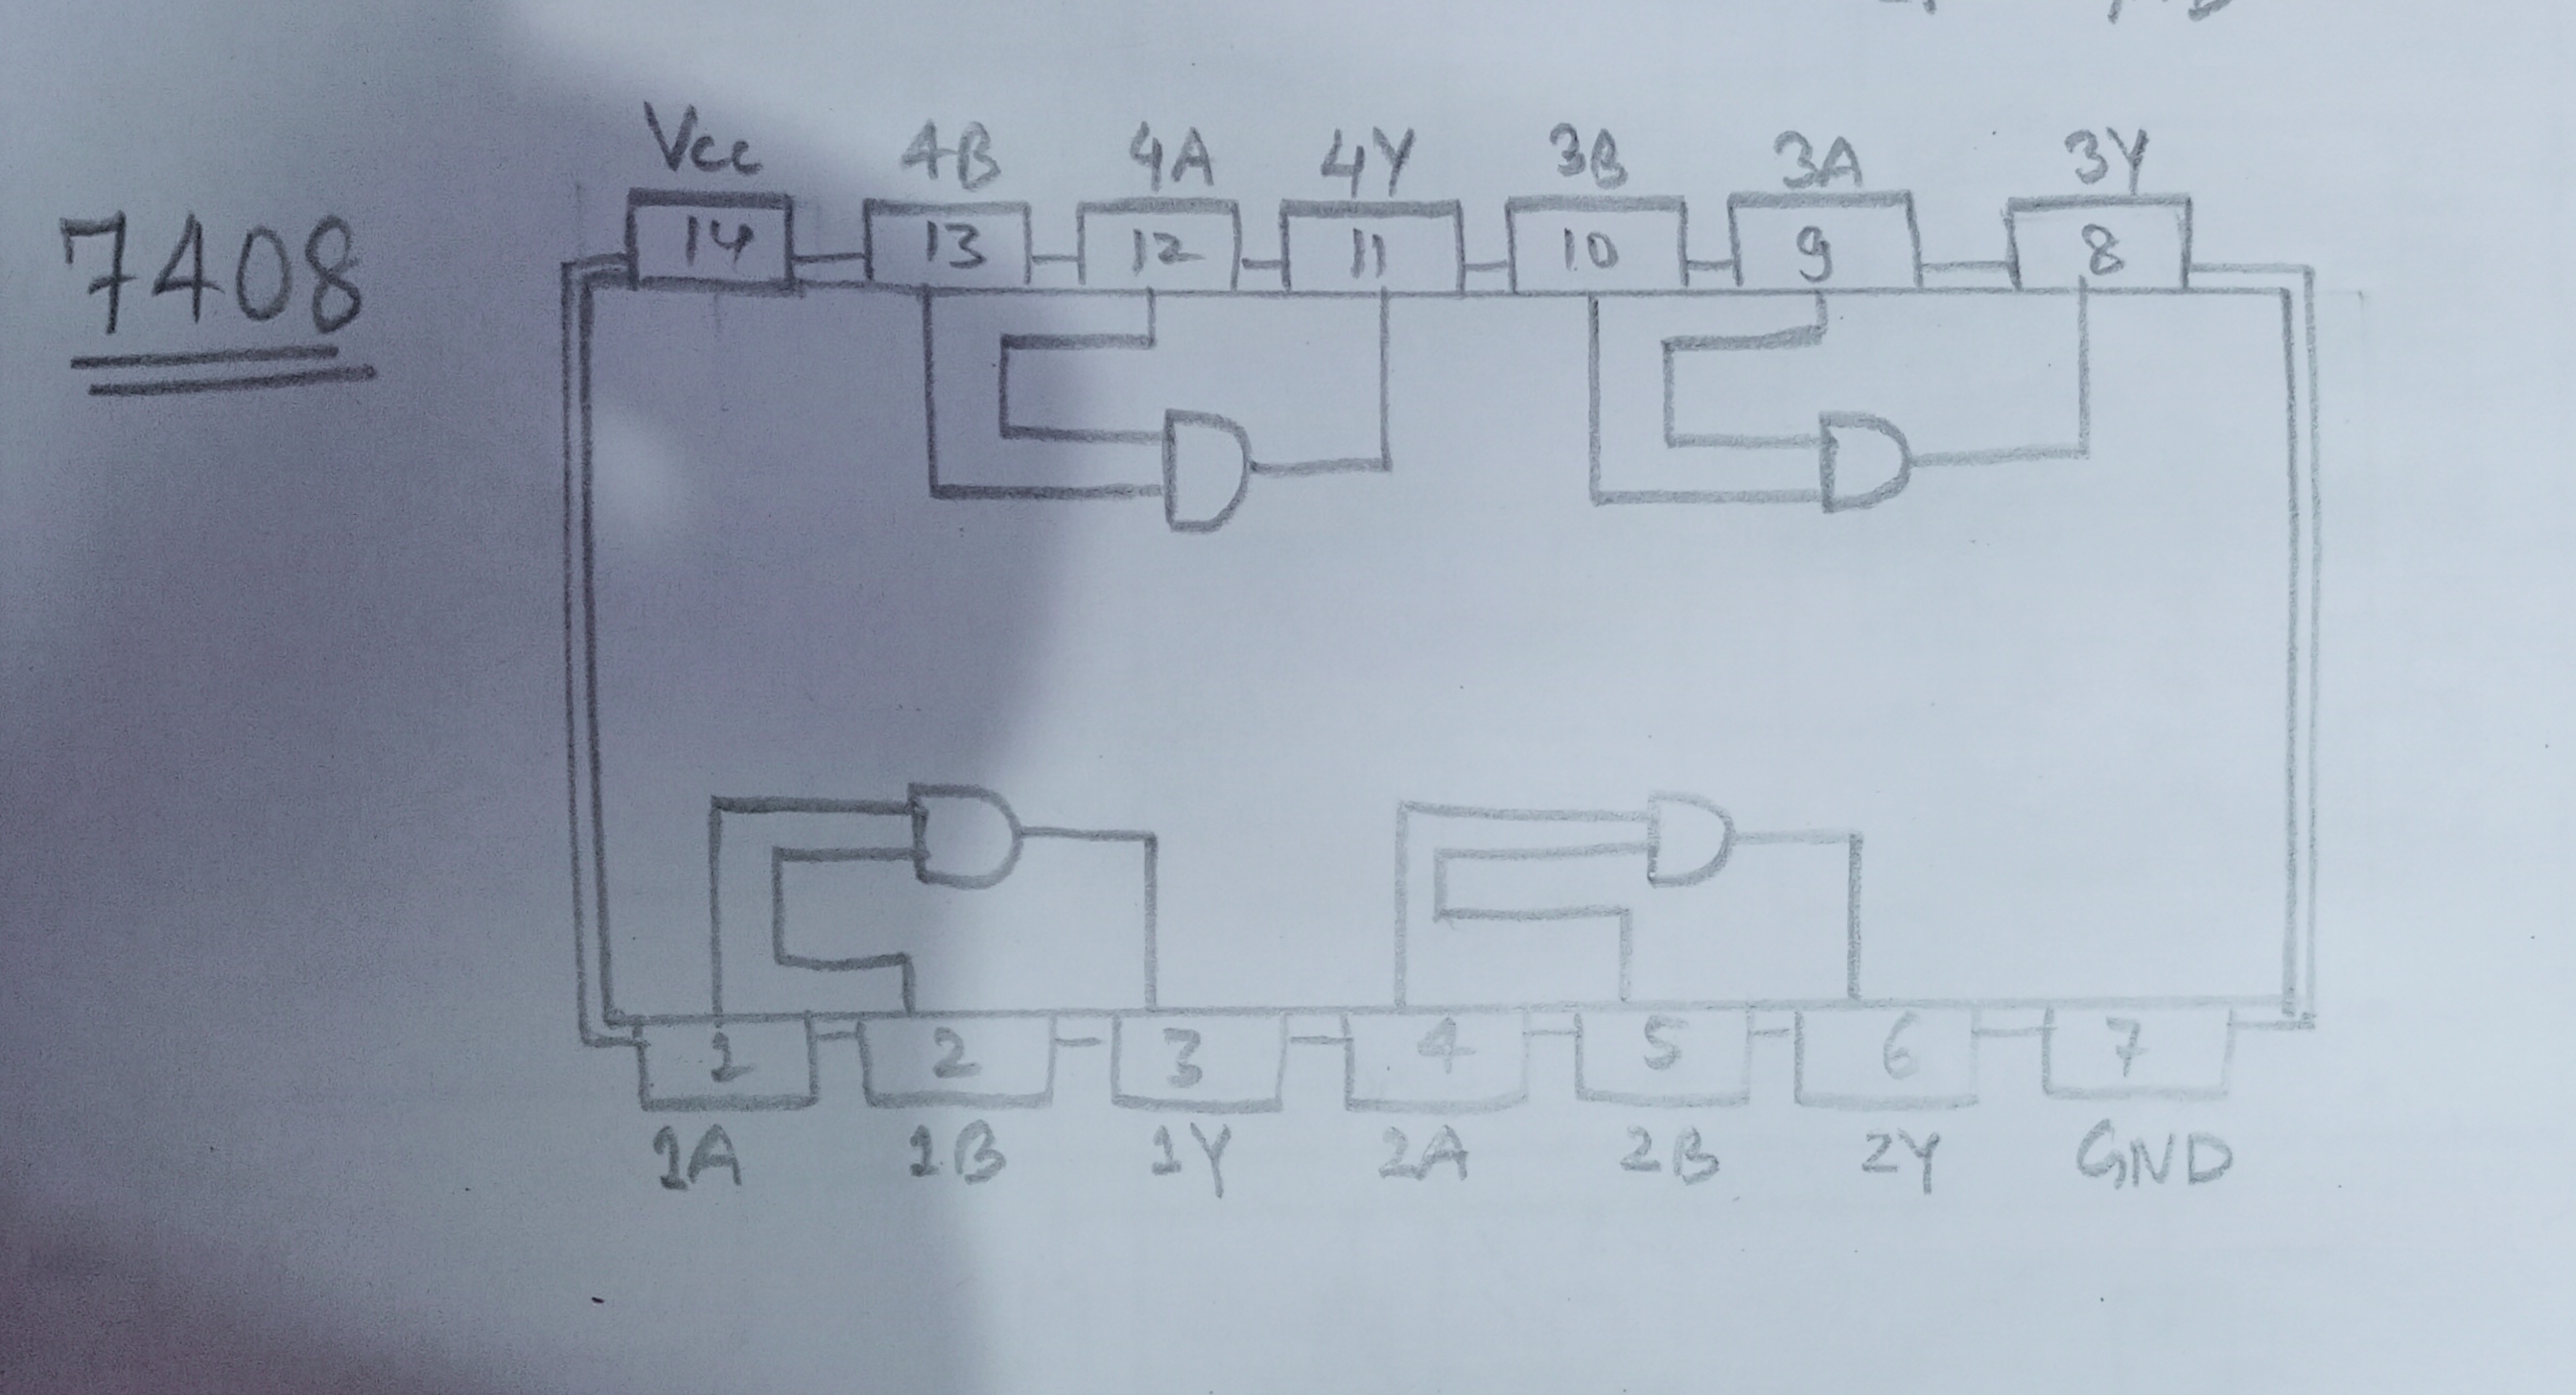 Vcc 4B 4A 4Y 3B 3A 3Y
7408
14 13 12 11 10 9 8
1 2 3 4 5 6 7
1A 1B 1Y 2A 2B 2Y GND